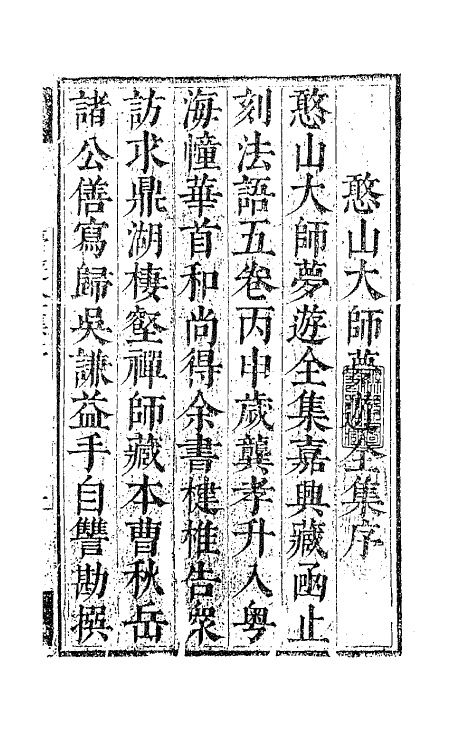 憨山大師夢遊全集序
憨山大師夢遊全集嘉興藏函止
刻法語五卷丙申歲龔孝升入粤
海幢華首和尚得余書槌椎告衆
訪求鼎湖棲壑禪師藏本曹秋岳
諸公僐寫歸吳謙益手自讐勘撰